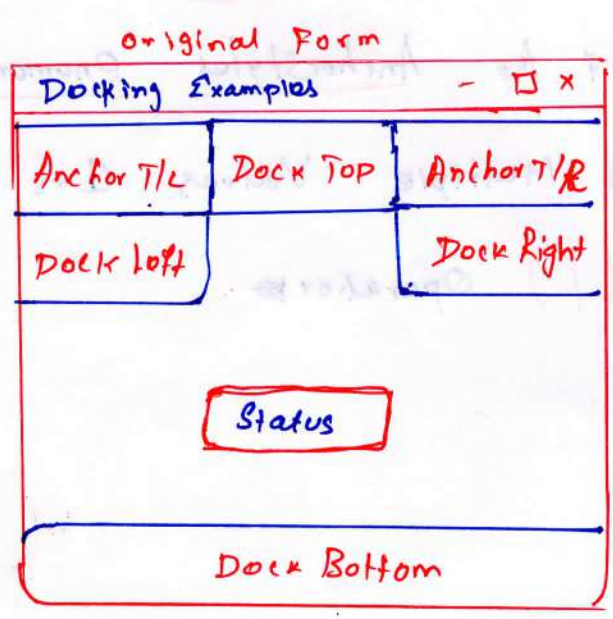 Original Form
Docking Examples - □ ×
Anchor T/L Dock Top Anchor T/R
Dock Left Dock Right
Status
Dock Bottom